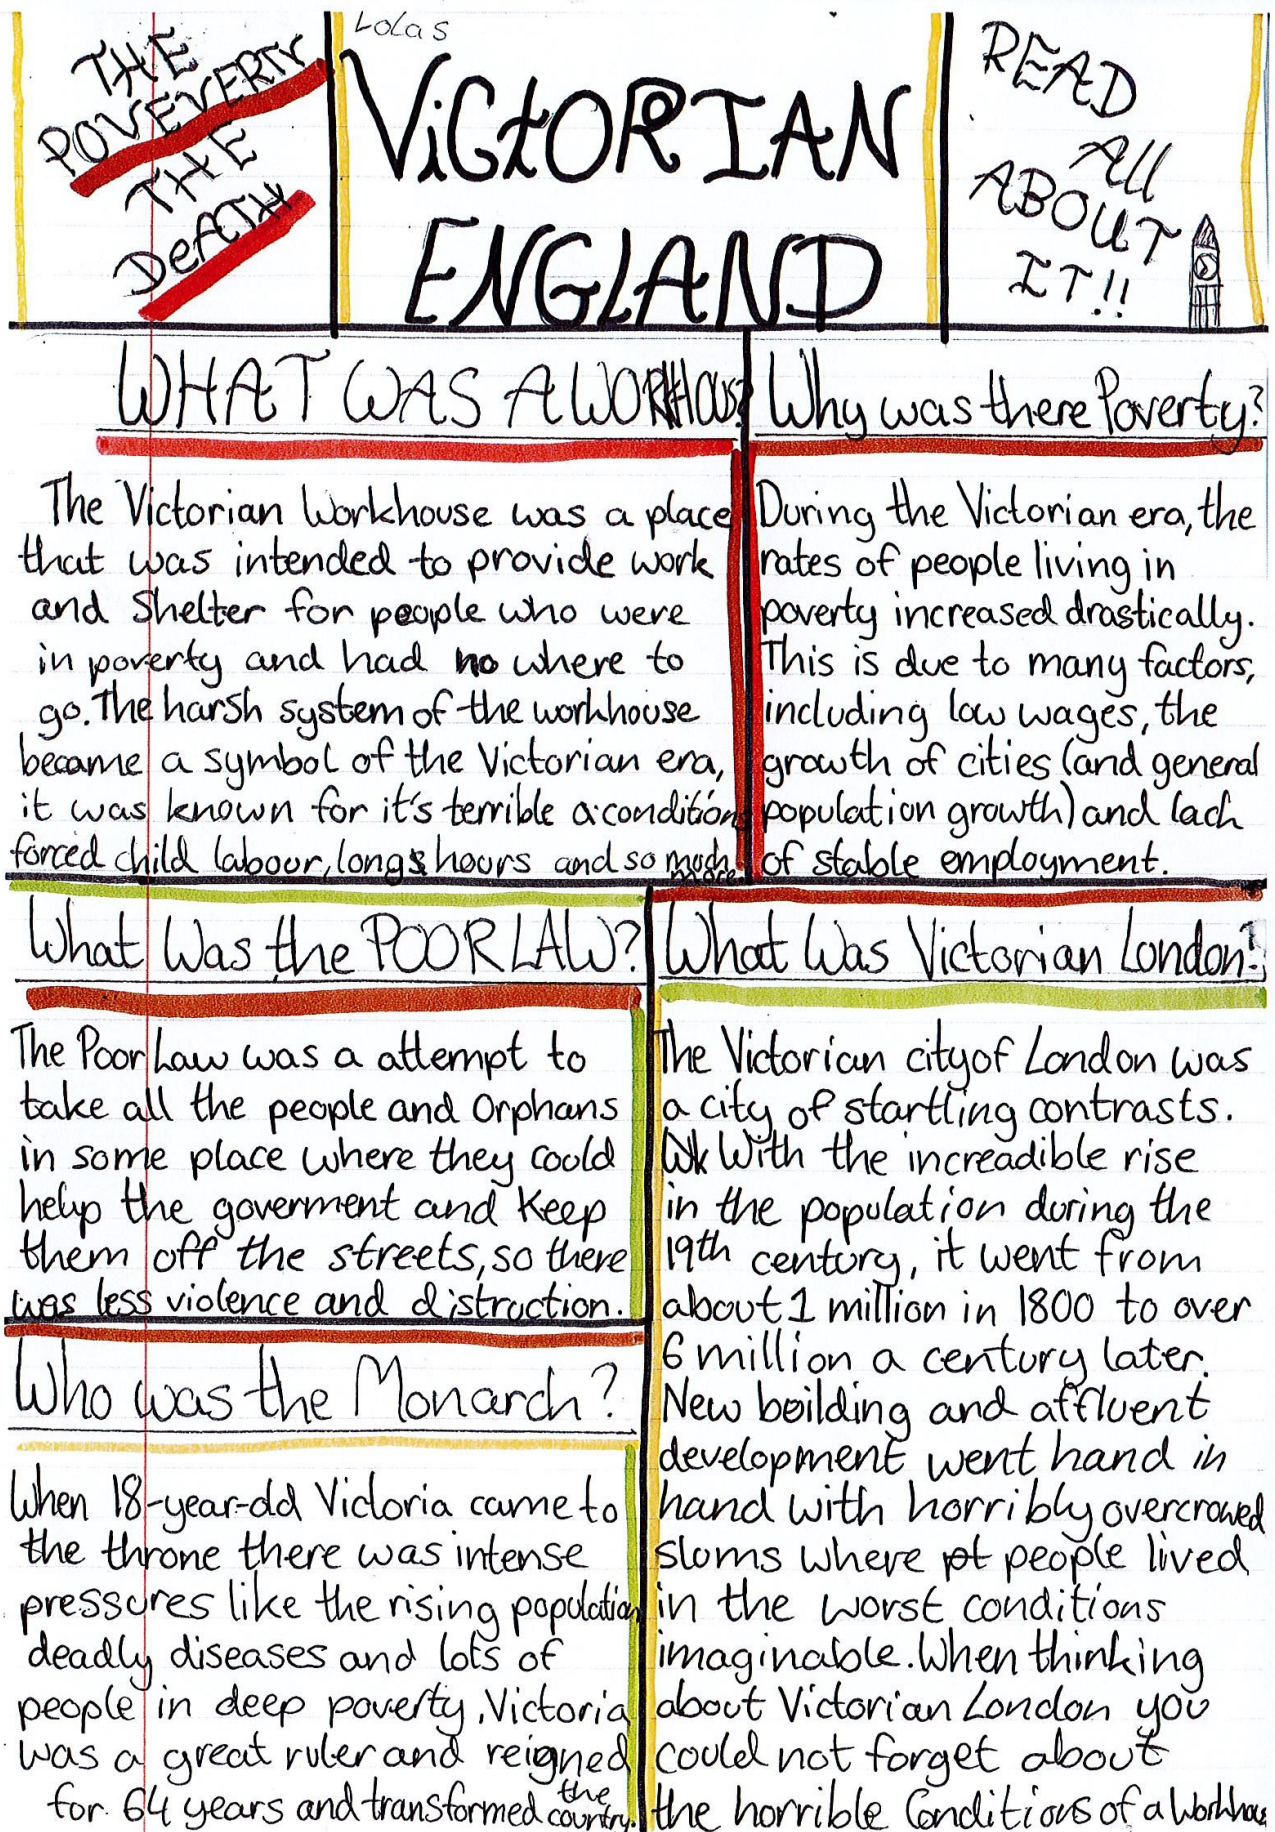 THE
POVEVERTY
THE
DEATH
Lolas
ViCtORIAN
ENGLAND
READ
All
ABOUT
IT!!
WHAT WAS A WORKHOUS?
The Victorian Workhouse was a place
that was intended to provide work
and Shelter for people who were
in poverty and had no where to
go. The harsh system of the workhouse
became a symbol of the Victorian era,
it was known for it's terrible conditions
forced child labour, long hours and so much
more.
Why was there Poverty?
During the Victorian era, the
rates of people living in
poverty increased drastically.
This is due to many factors,
including low wages, the
growth of cities (and general
population growth) and lack
of stable employment.
What Was the POOR LAW?
The Poor Law was a attempt to
take all the people and Orphans
in some place where they could
help the goverment and Keep
them off the streets, so there
was less violence and distruction.
Who was the Monarch?
When 18-year-old Victoria came to
the throne there was intense
pressures like the rising population
deadly diseases and lots of
people in deep poverty. Victoria
was a great ruler and reigned
for 64 years and transformed the
country.
What Was Victorian London?
The Victorian city of London was
a city of startling contrasts.
With the increadible rise
in the population during the
19th century, it went from
about 1 million in 1800 to over
6 million a century later.
New boilding and affluent
development went hand in
hand with horribly overcrowed
sloms where people lived
in the worst conditions
imaginable. When thinking
about Victorian London you
could not forget about
the horrible Conditions of a Workhou